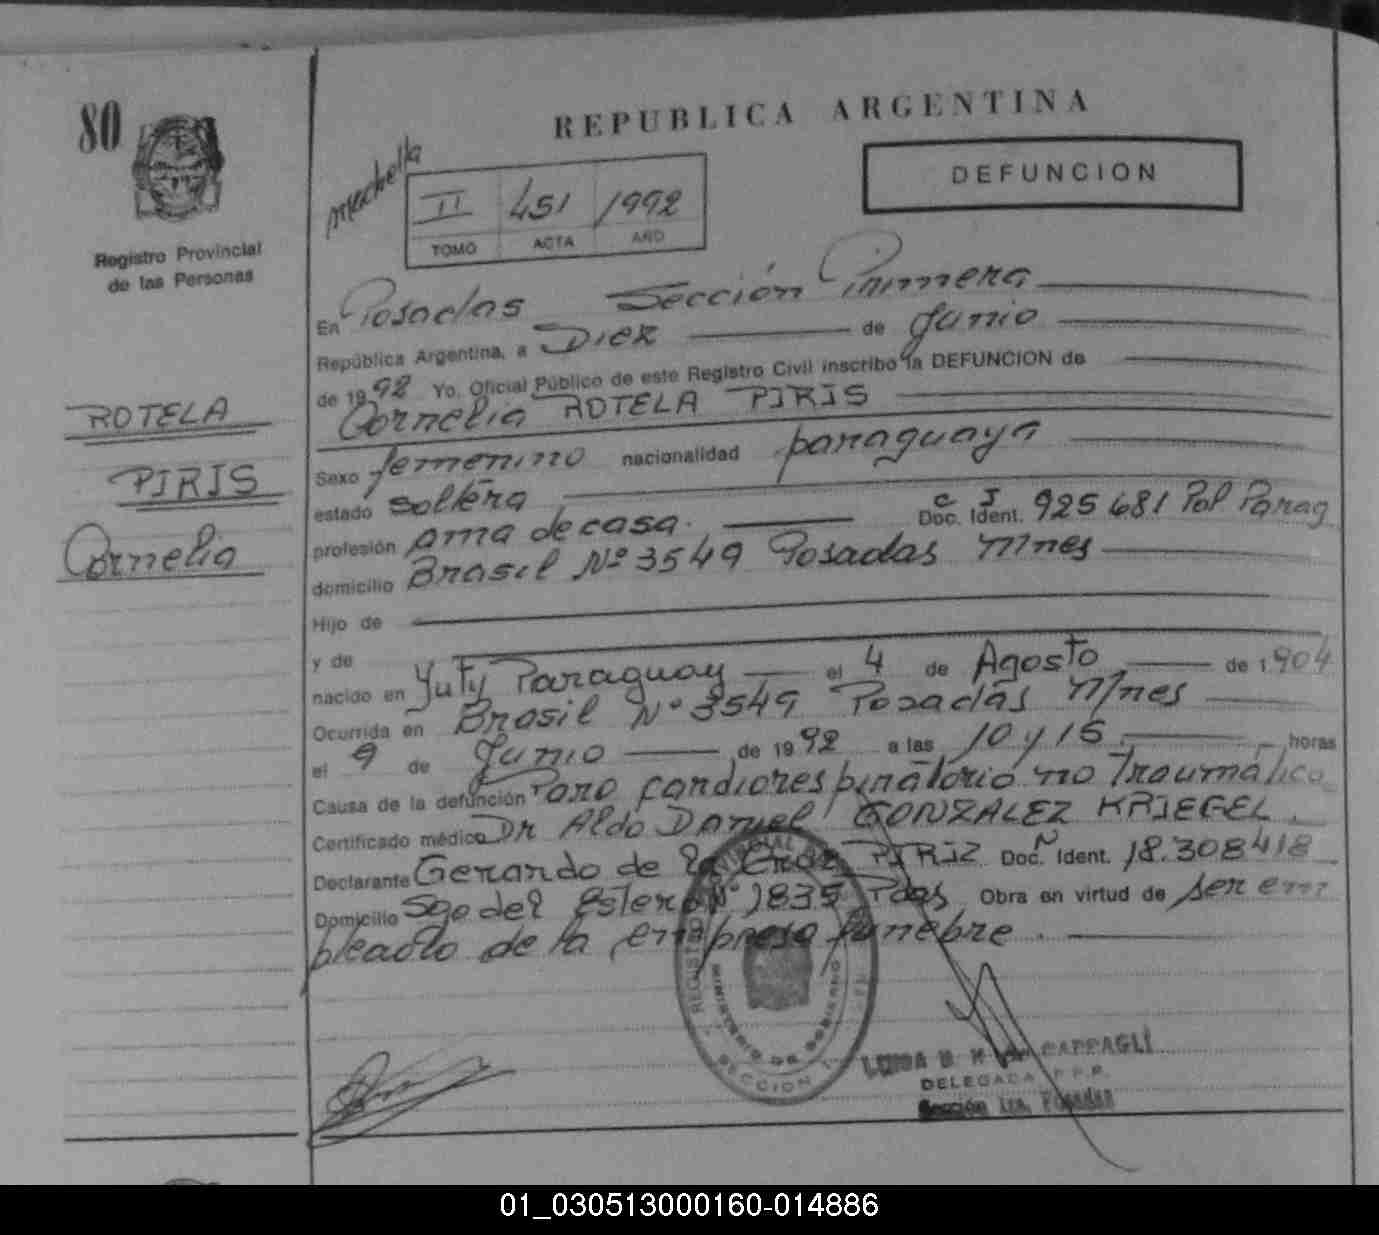 80
Registro Provincial
de las Personas
ROTELA
PIRIS
Cornelia
REPUBLICA ARGENTINA
DEFUNCION
II 451 1992
TOMO ACTA AÑO
En Posadas Sección Primera
República Argentina, a Diez de Junio
de 1992 Yo. Oficial Público de este Registro Civil inscribo la DEFUNCION de
Cornelia ROTELA PIRIS
Sexo femenino nacionalidad paraguaya
estado soltera
profesión ama de casa. Doc. Ident. C I 925681 Pol Parag
domicilio Brasil Nº 3549 Posadas Mnes
Hijo de
y de
nacido en Yuty Paraguay el 4 de Agosto de 1904
Ocurrida en Brasil Nº 3549 Posadas Mnes
el 9 de Junio de 1992 a las 10 y 15 horas
Causa de la defunción Paro cardiorespiratorio no traumatico
Certificado médico Dr Aldo Daniel GONZALEZ KRIEGEL.
Declarante Gerardo de la Cruz PIRIZ Doc. Ident. 18.308418
Domicilio Sgo del Estero Nº 1835 Pdas Obra en virtud de ser em
pleado de la empresa funebre.
MINISTERIO DE GOBIERNO
SECCION 1
DELEGADA
Sección 1ra. Posadas
01_030513000160-014886